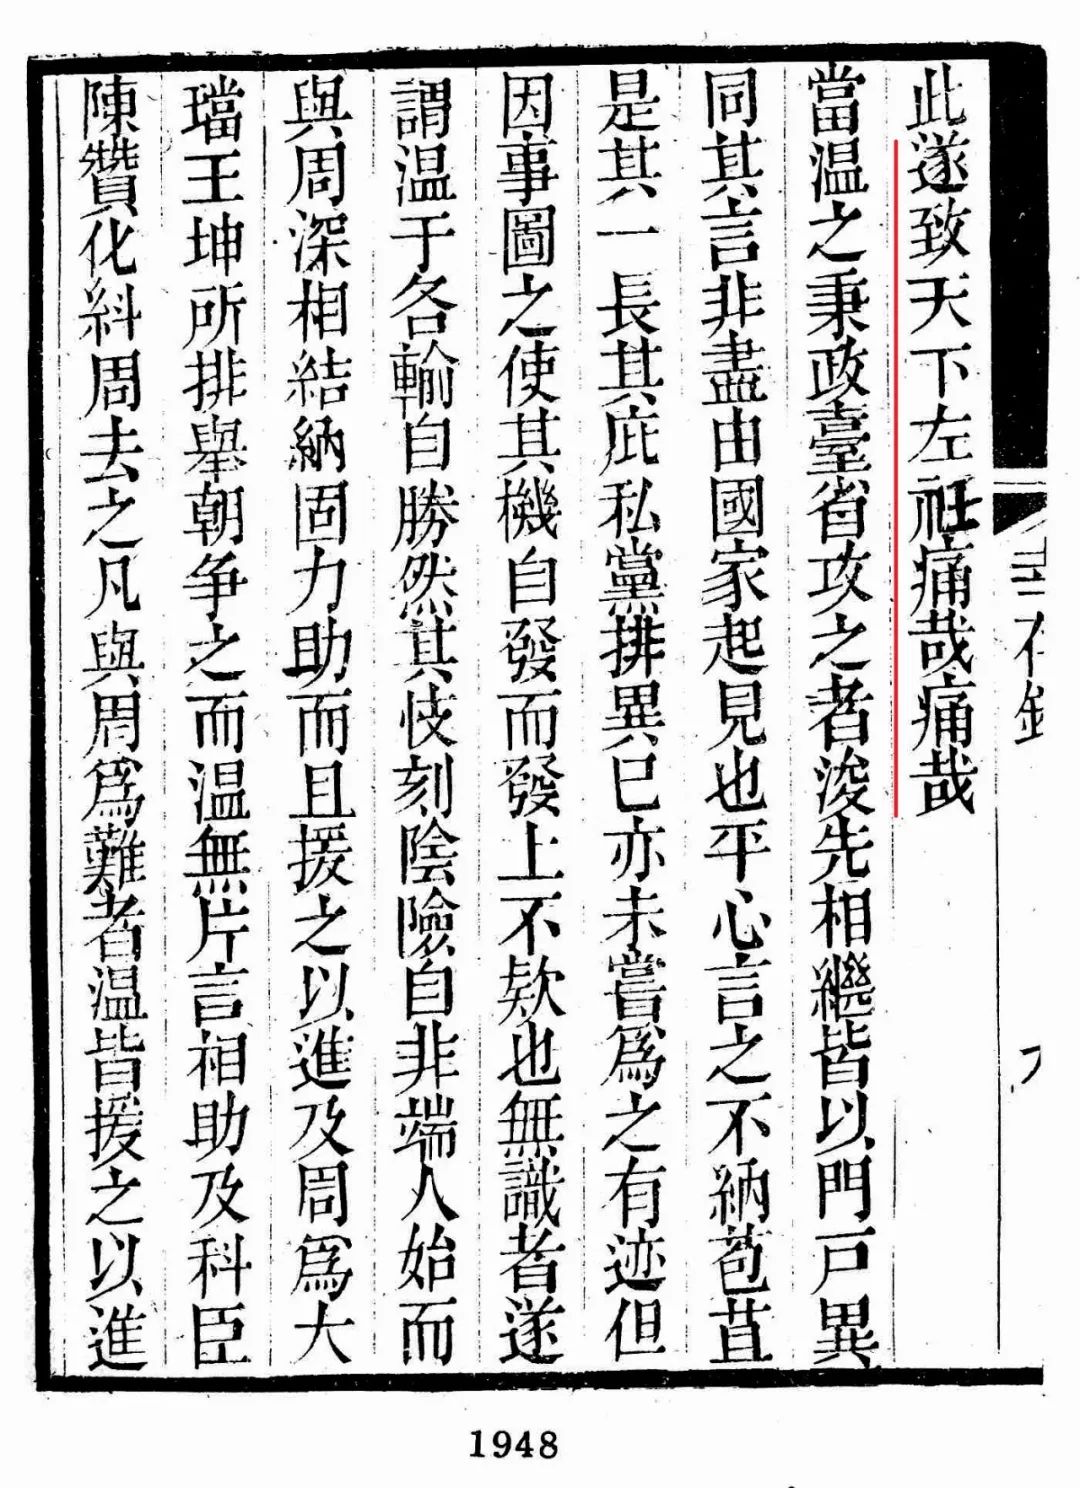 此遂致天下左衽痛哉痛哉
當温之秉政臺省攻之者浚先相繼皆以門戸異
同其言非盡由國家起見也平心言之不納苞苴
是其一長其庇私黨排異已亦未嘗爲之有迹但
因事圖之使其機自發而發上不欵也無識者遂
謂温于各輸自勝然其忮刻陰險自非端人始而
與周深相結納固力助而且援之以進及周爲大
璫王坤所排舉朝争之而温無片言相助及科臣
陳贊化糾周去之凡與周爲難者温皆援之以進
1948